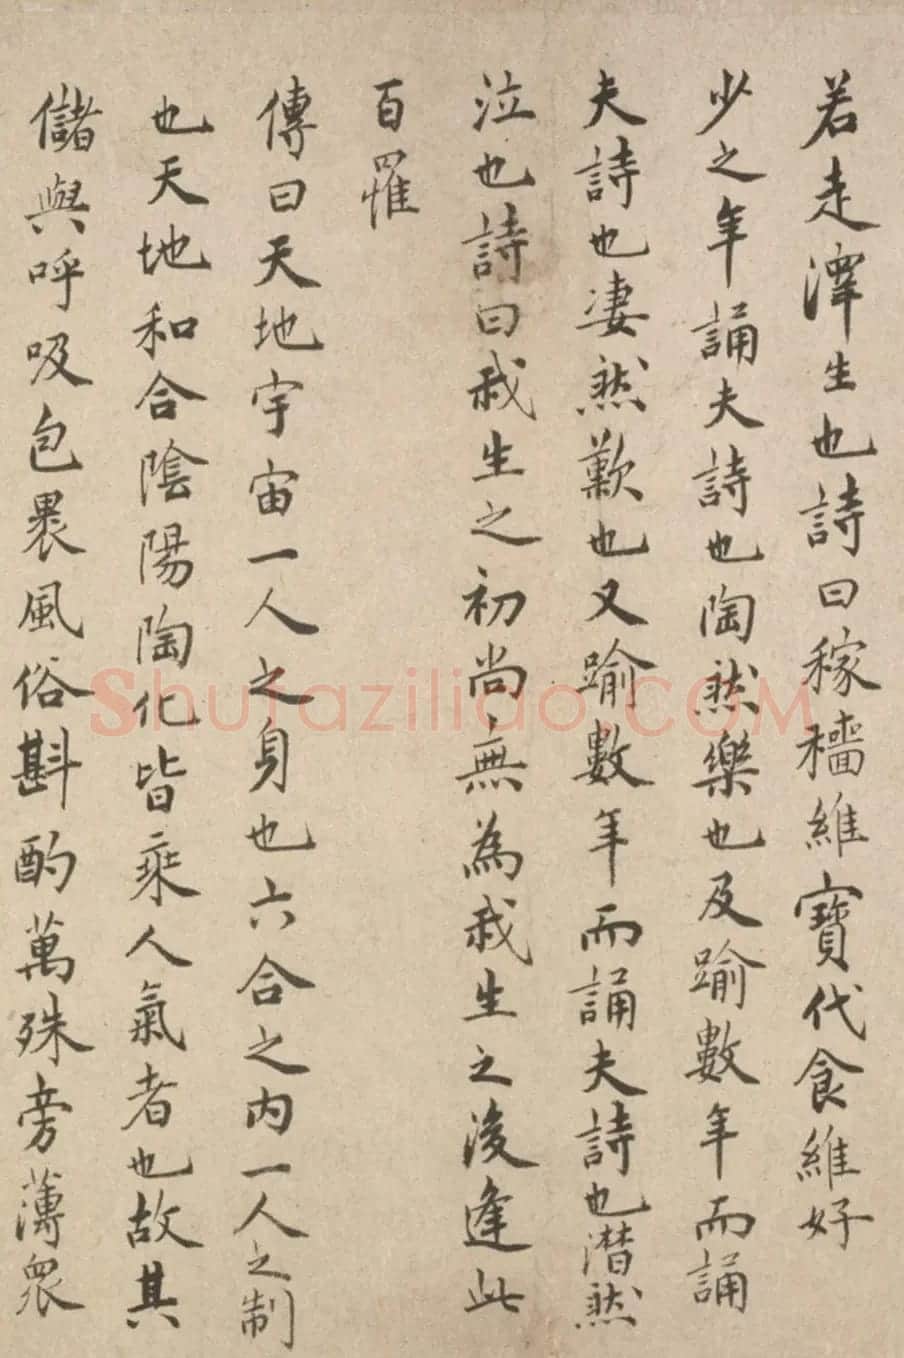 若走澤生也詩曰稼穡維寶代食維好
少之年誦夫詩也陶然樂也及踰數年而誦
夫詩也凄然歎也又踰數年而誦夫詩也潸然
泣也詩曰我生之初尚無為我生之後逢此
百罹
傳曰天地宇宙一人之身也六合之内一人之制
也天地和合陰陽陶化皆乘人氣者也故其
儲與呼吸包裹風俗斟酌萬殊旁薄衆
Shufaziliao.COM